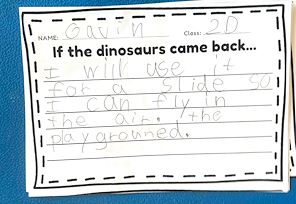 NAME: Gavin Class: 2D
If the dinosaurs came back...
I will use it
for a slide so
I can fly in
the air. the
playgrouned.